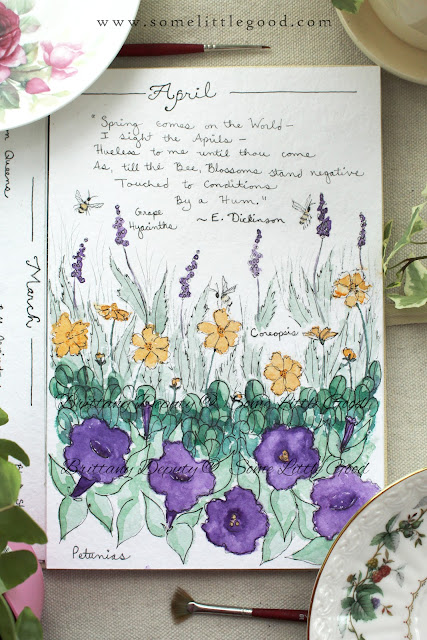 www.somelittlegood.com
April
"Spring comes on the World -
I sight the Aprils -
Hueless to me until thou come
As, till the Bee, Blossoms stand negative
Touched to Conditions
By a Hum."
~ E. Dickinson
Grape
Hyacinths
Coreopsis
Brittany Deputy @ Some Little Good
Brittany Deputy @ Some Little Good
Petunias
March
Queens
www.somelittlegood.com